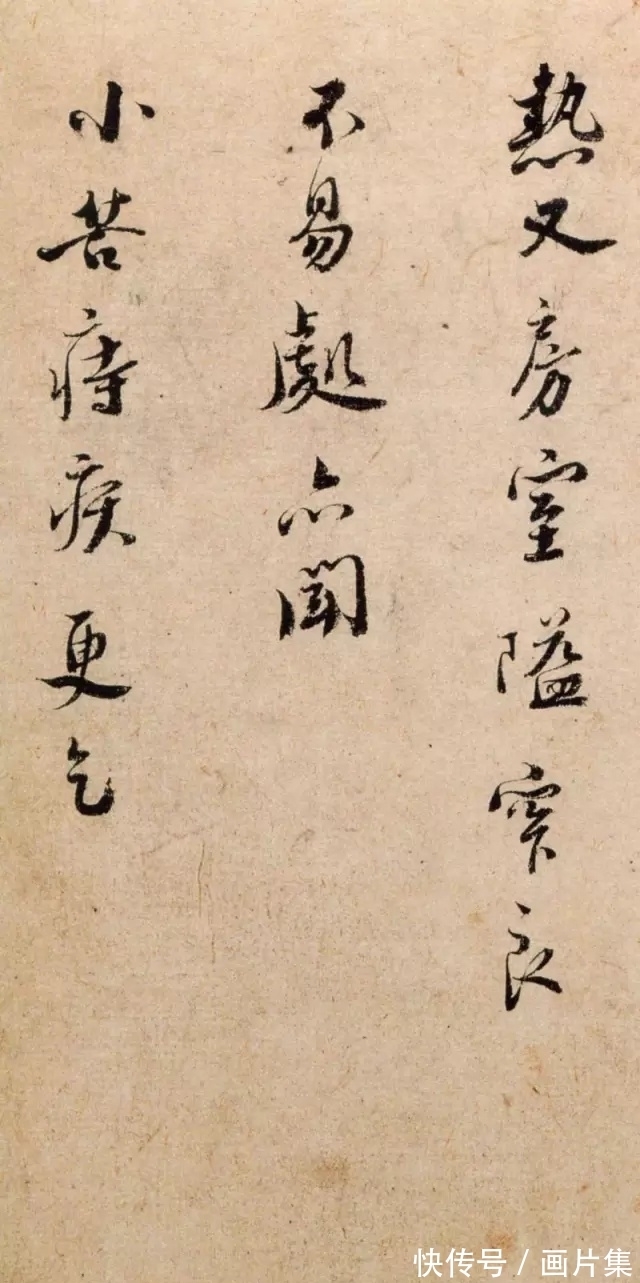 熱又房室隘窄良
不易處亦聞
小苦痔疾更乞
快传号 / 画片集